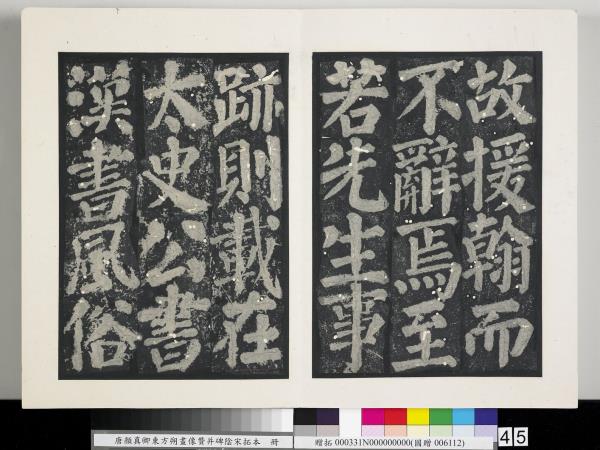 故援翰而
不辭焉至
若先生事
跡則載在
太史公書
漢書風俗
唐顏真卿東方朔畫像贊并碑陰宋拓本 冊
贈拓 000331N000000000(國贈 006112)
45